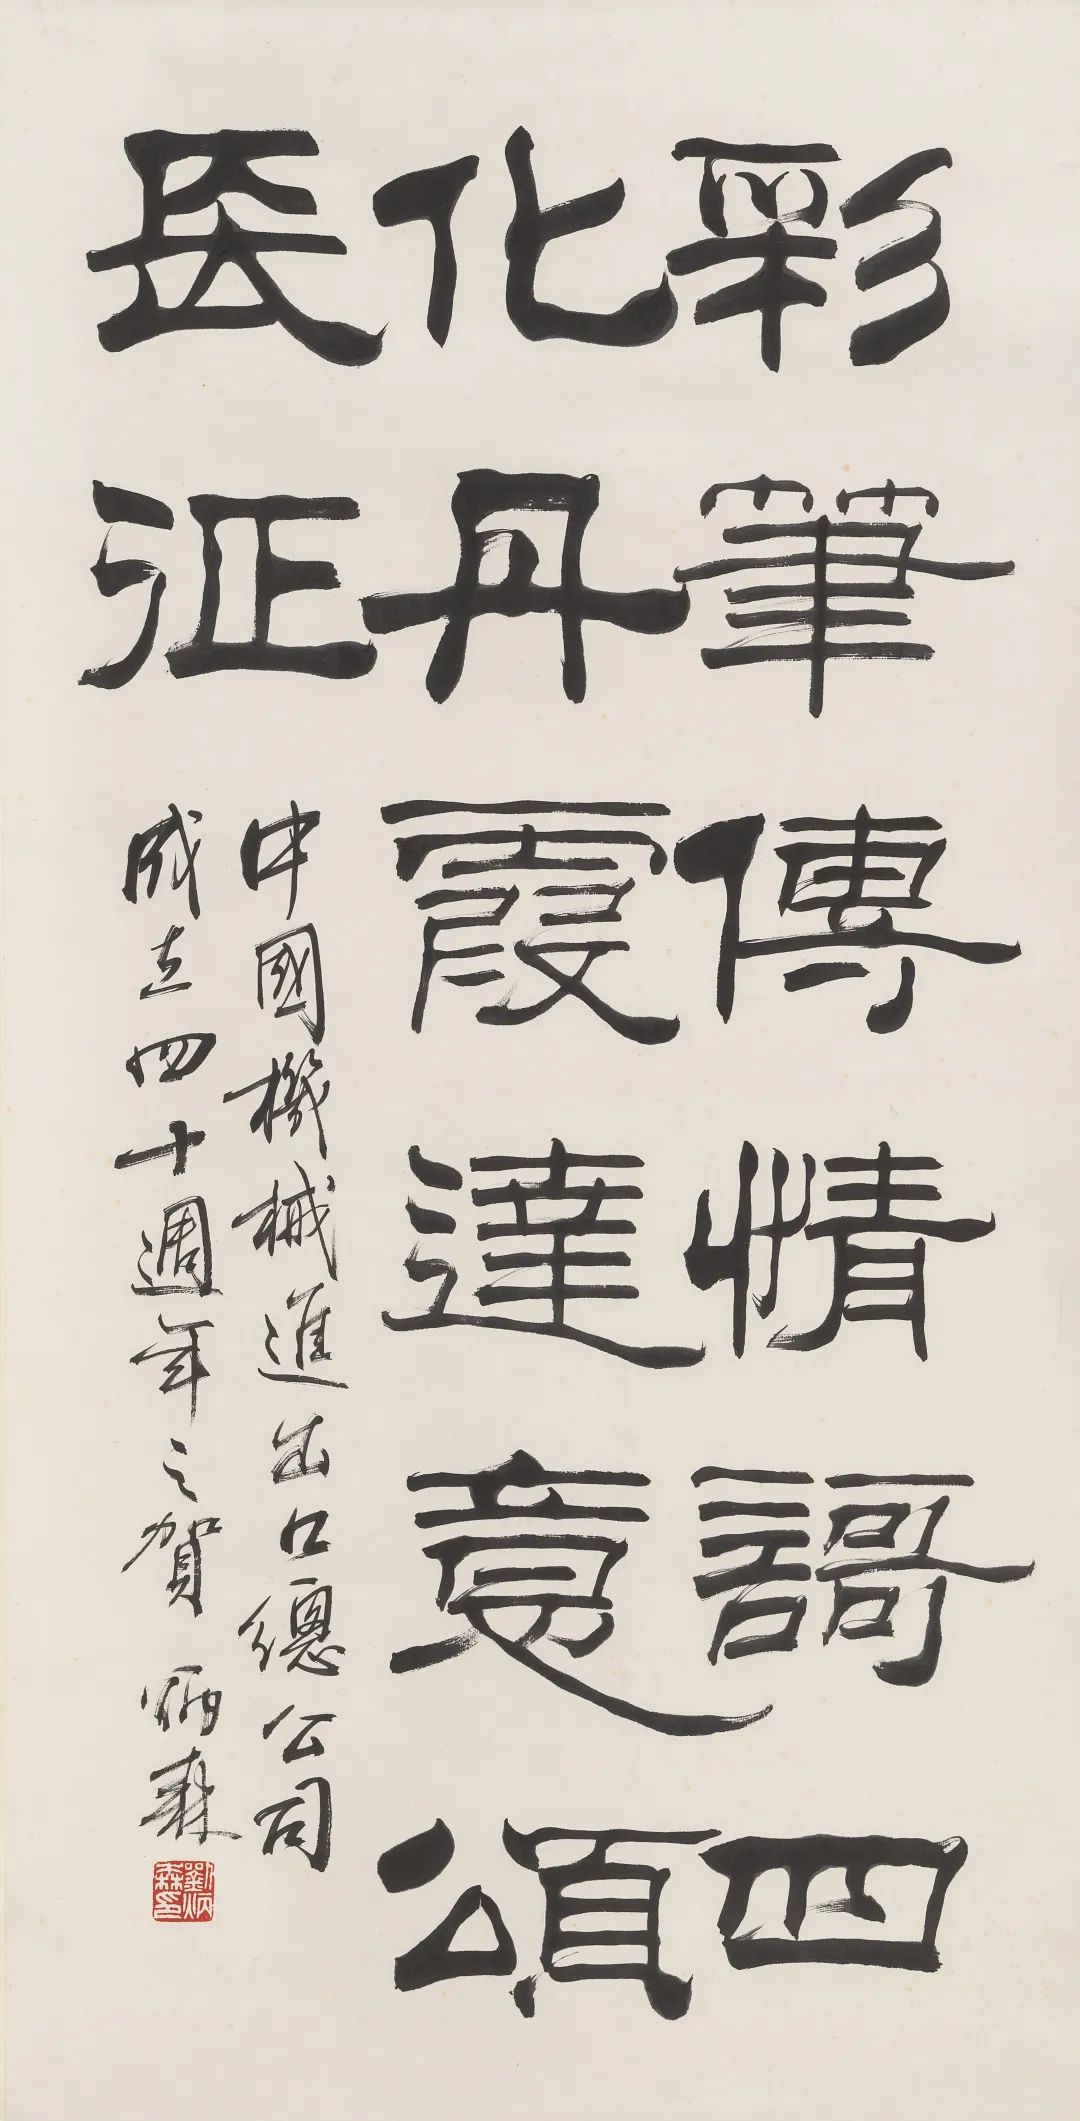 彩筆傳情謌四
化丹霞達意頌
長征
中國機械進出口總公司
成立四十週年之賀 炳森
劉炳森印